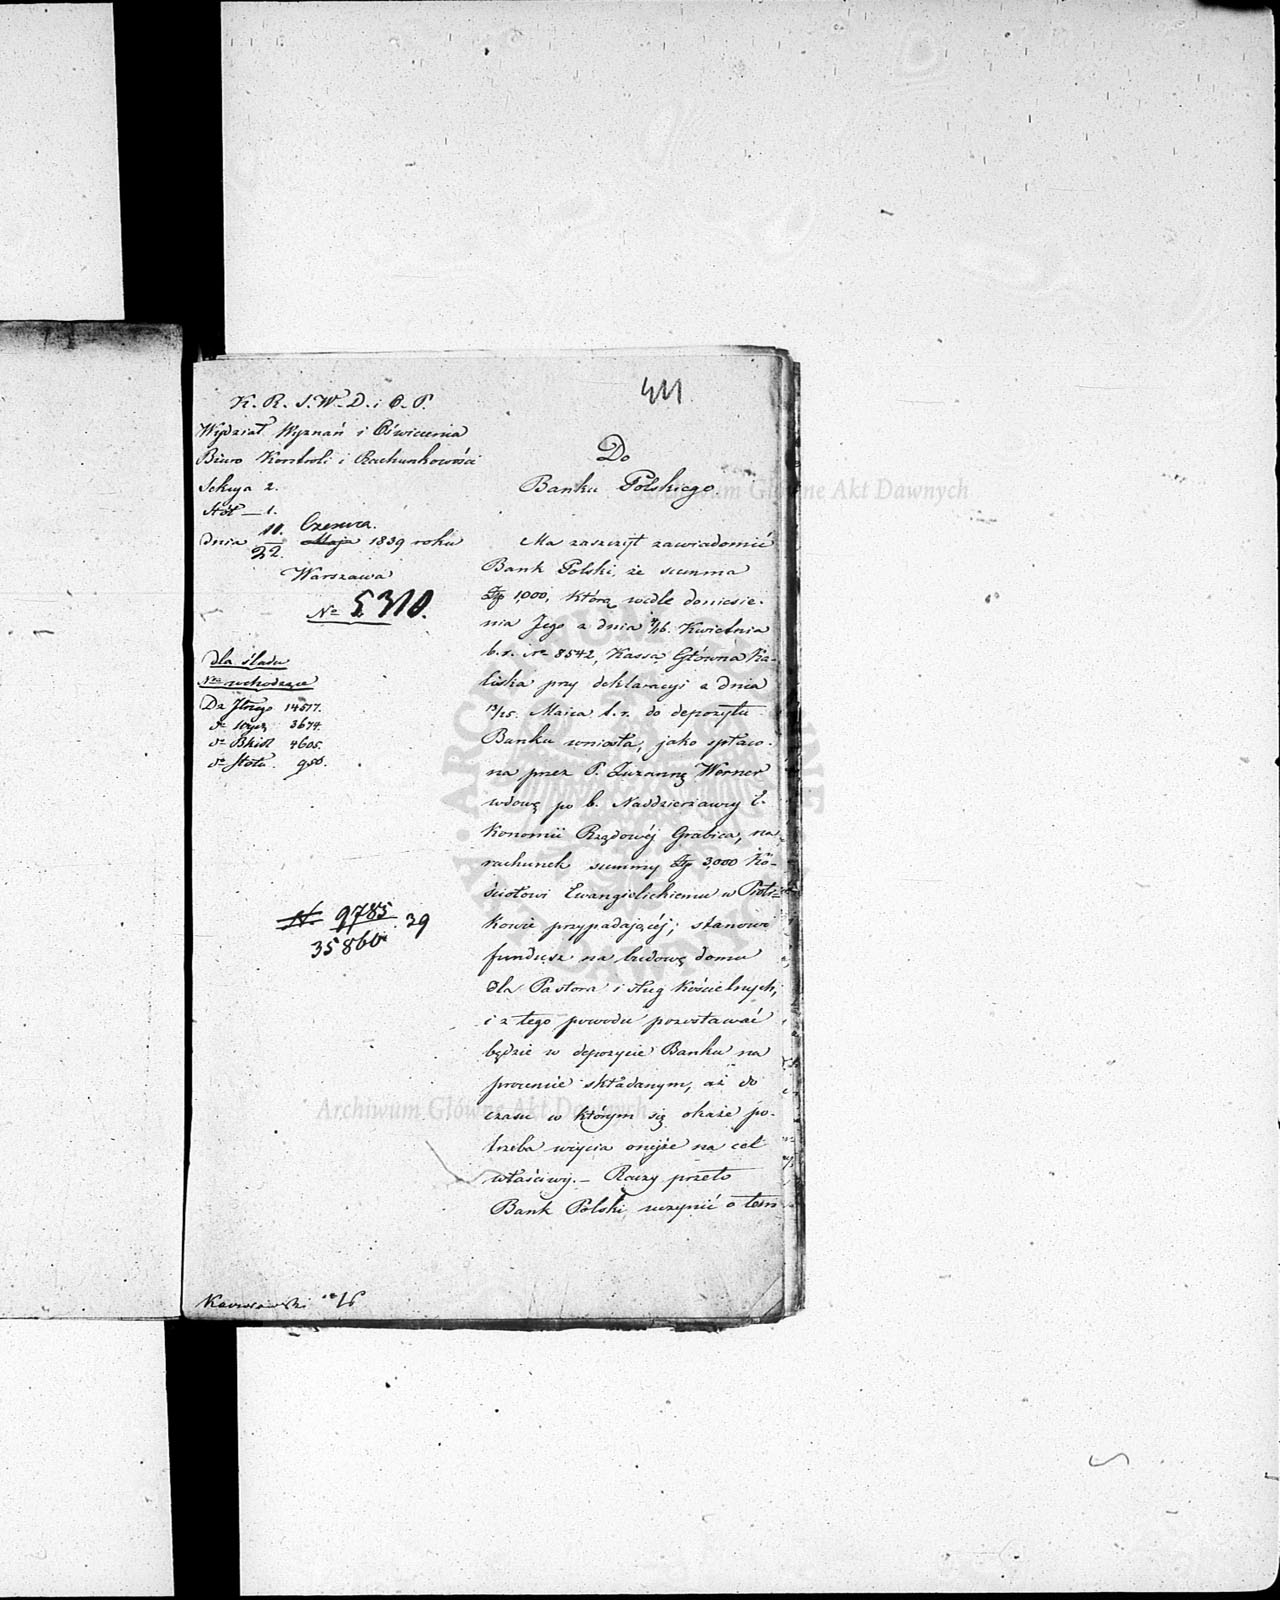 411
K. R. S. W. D. i O. P.
Wydział Wyznań i Oświecenia
Biuro Kontroli i Rachunkowości
Sekcya 2.
Stół — 1.
dnia 10/22. Czerwca. Maja 1839 roku
Warszawa
No 5310.
dla śladu
Nra wchodzące
Dz Jlnego 14577.
do Wycz 3674.
do Bkról 4605.
do Stołu 950.
N 9785/35866 .39
Do
Banku Polskiego
Ma zaszczyt zawiadomić
Bank Polski, że summa
Złp 1,000, którą wedle doniesie-
nia Jego z dnia 4/16. Kwietnia
b.r. No 8542, Kassa Główna Ka-
liska przy deklaracyi z dnia
13/25. Marca b.r. do depozytu
Banku wniosła, jako spłaco-
na przez P. Zuzannę Werner
wdowę po b. Naddzierżawcy E-
konomii Rządowéj Grabica, na
rachunek summy Złp 3,000 Ko-
ściołowi Ewangielickiemu w Piotr-
kowie przypadającéj; stanowi
fundusz na budowę domu
dla Pastora i sług kościelnych,
i z tego powodu pozostawać
będzie w depozycie Banku na
procencie składanym, aż do
czasu w którym się okaże po-
trzeba użycia onéjże na cel
właściwy. — Raczy przeto
Bank Polski uczynić o tem
Archiwum Główne Akt Dawnych
Archiwum Główne Akt Dawnych